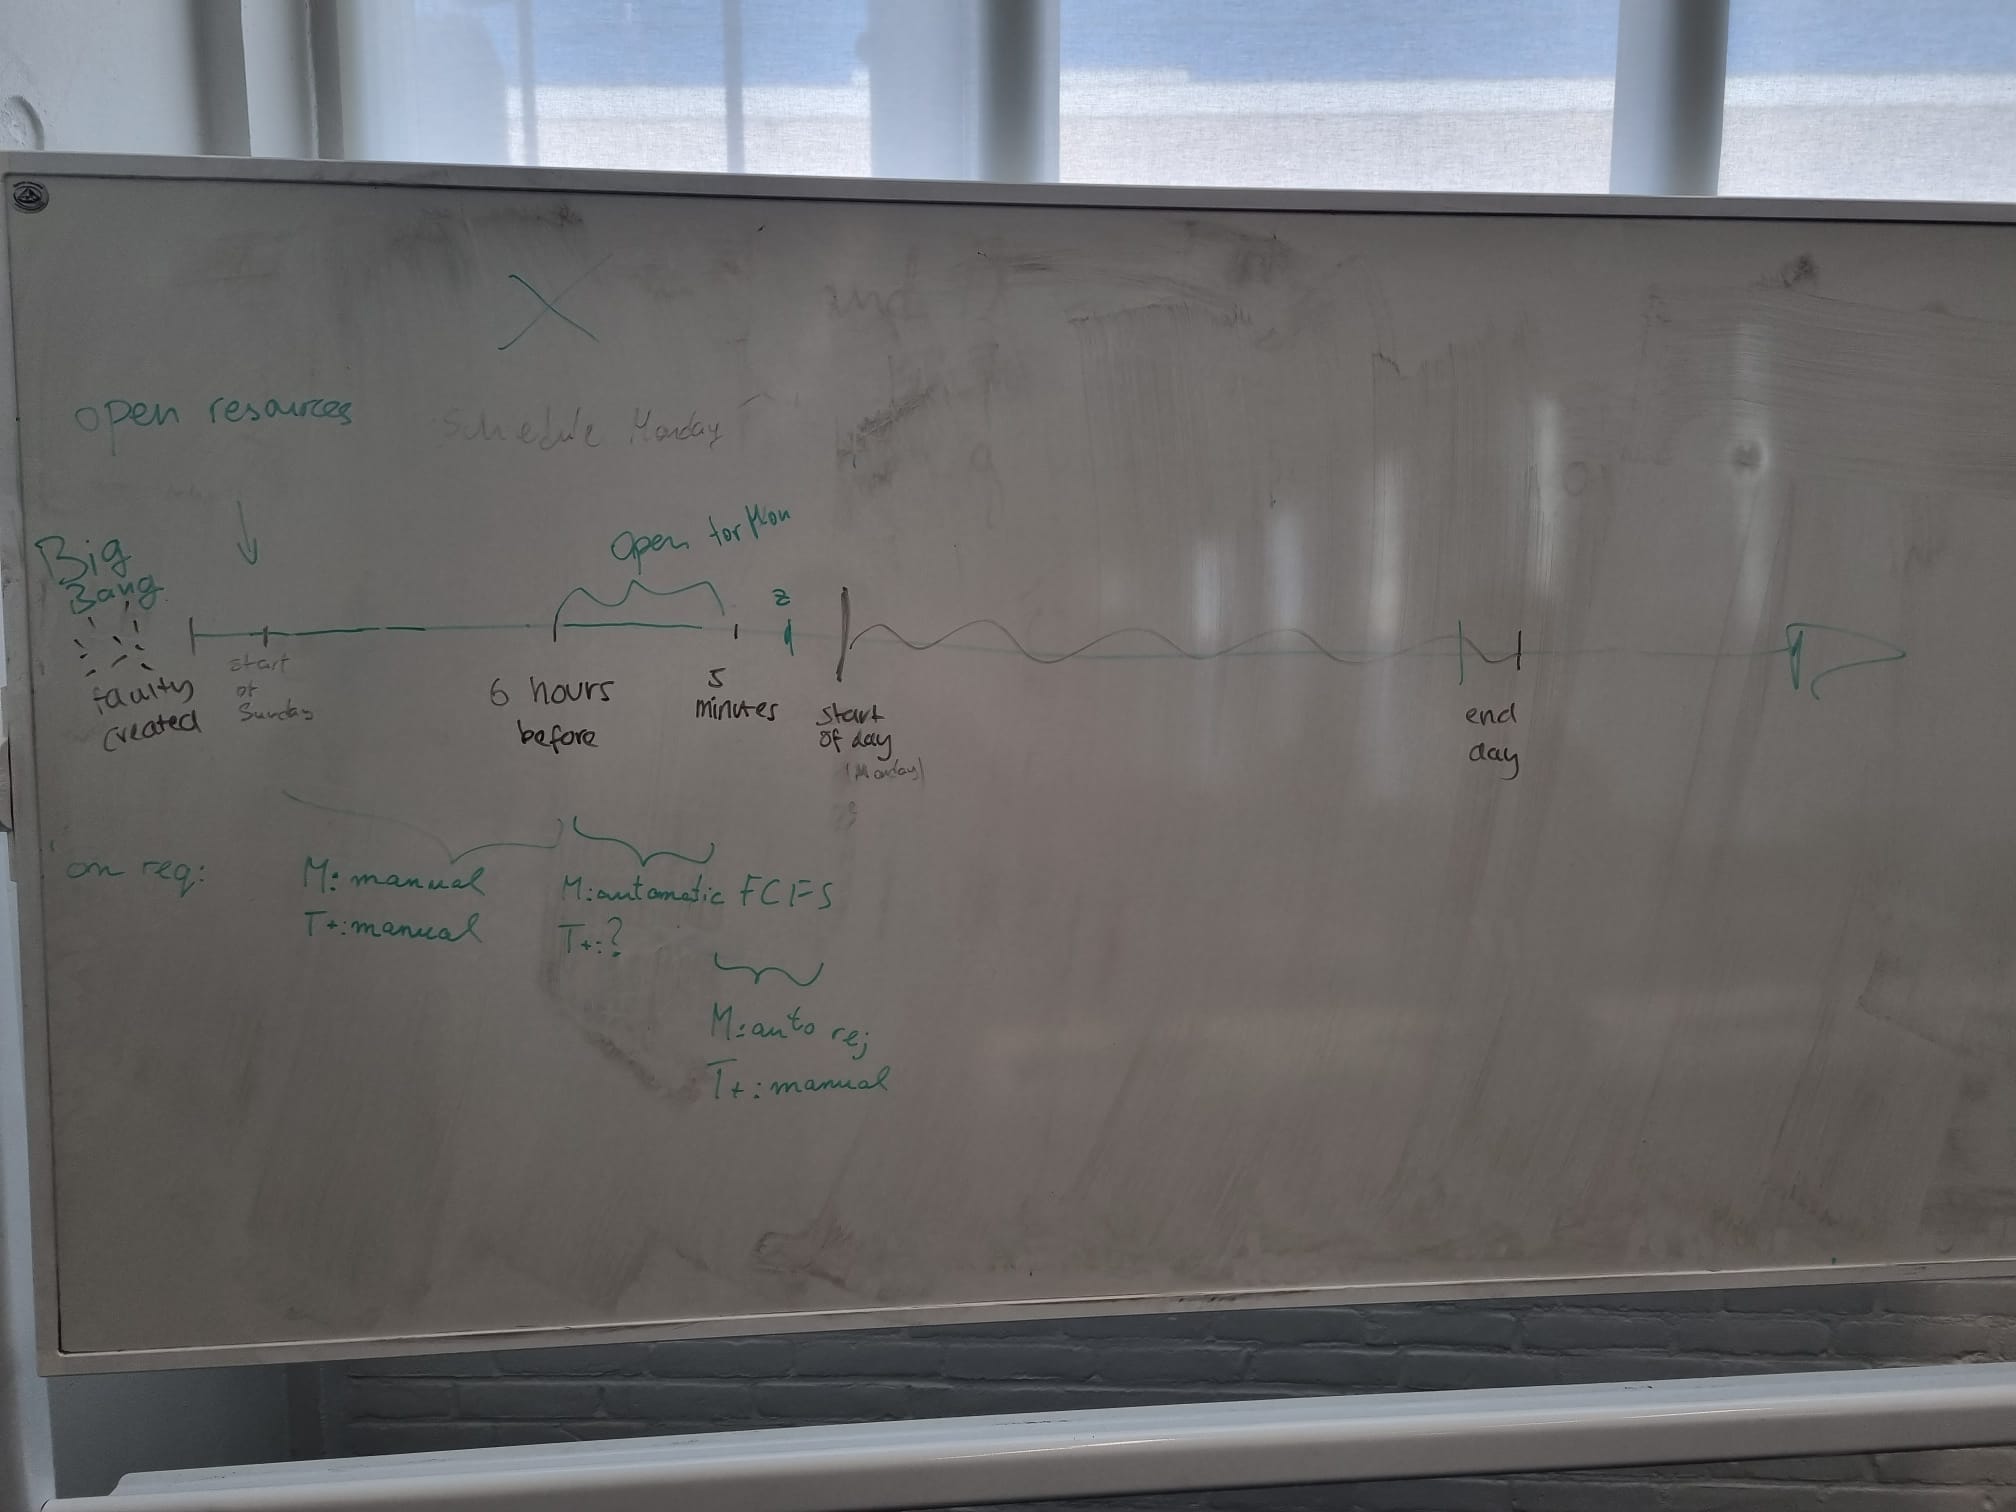 open resources
Schedule Monday
Open for Mon
Big
Bang
z
faulty
created
start
of
Sunday
6 hours
before
5
minutes
start
of day
(Monday)
end
day
on req:
M: manual
T+: manual
M: automatic FCFS
T+: ?
M: auto rej
T+: manual